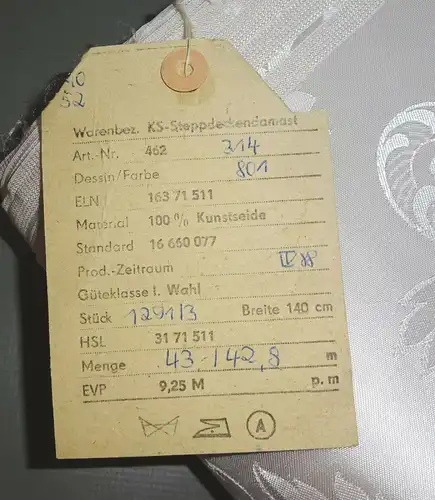 10
52
Warenbez. KS-Steppdeckendamast
Art.-Nr. 462 314
Dessin/Farbe 801
ELN 163 71 511
Material 100 % Kunstseide
Standard 16 660 077
Prod.-Zeitraum IV 88
Güteklasse I. Wahl
Stück 1291/3 Breite 140 cm
HSL 31 71 511
Menge 43.142,8 m
EVP 9,25 M p. m
A